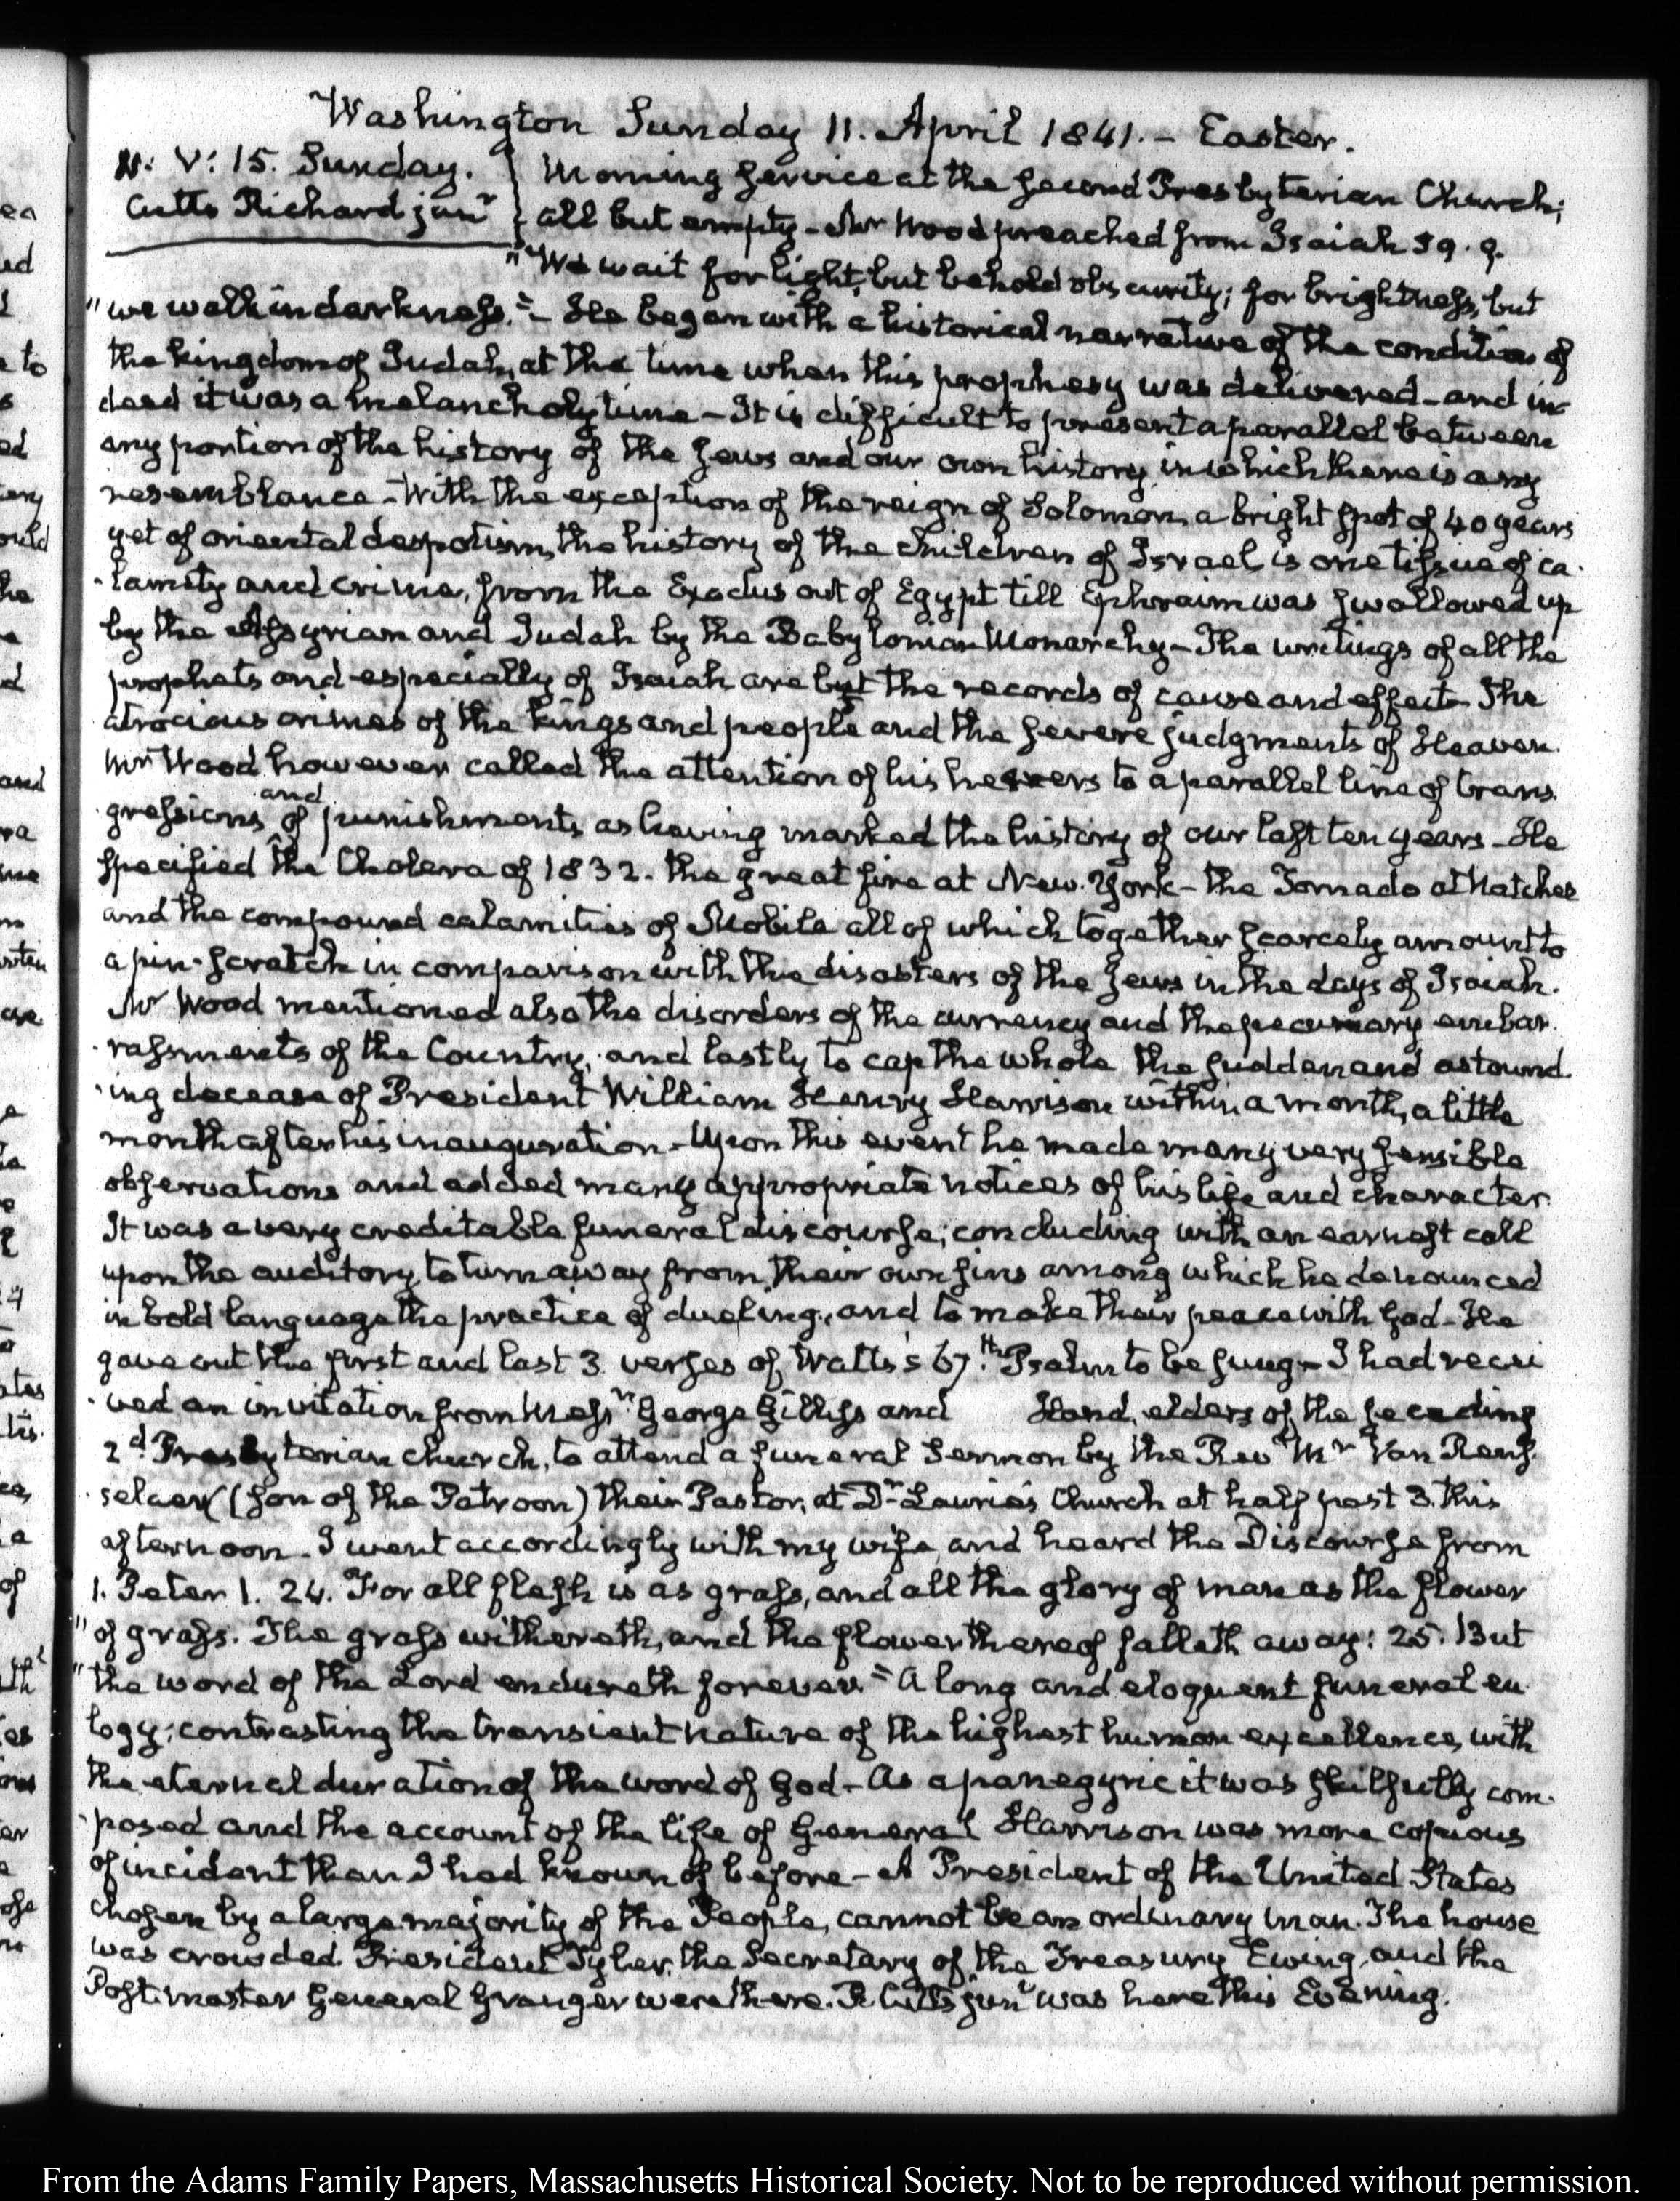 Washington Sunday 11. April 1841.– Easter.
IV: V: 15. Sunday.
Cutts Richard junr
Morning service at the second Presbyterian Church;
all but empty – Mr Wood preached from Isaiah 59. 9.
"We wait for light, but behold obscurity; for brightness, but
"we walk in darkness."– He began with a historical narrative of the condition of
the kingdom of Judah, at the time when this prophesy was delivered – and in
deed it was a melancholy time – It is difficult to present a parallel between
any portion of the history of the Jews and our own history, in which there is any
resemblance – With the exception of the reign of Solomon, a bright spot of 40 years
yet of oriental despotism, the history of the children of Israel is one tissue of ca-
-lamity and crime, from the Exodus out of Egypt till Ephraim was swallowed up
by the Assyrian and Judah by the Babylonian Monarchy – The writings of all the
prophets and especially of Isaiah are but the records of cause and effect – The
atrocious crimes of the kings and people and the severe judgments of Heaven.
Mr Wood however called the attention of his hearers to a parallel line of trans
-gressions and of punishments, as having marked the history of our last ten years – He
specified the Cholera of 1832. the great fire at New-York – the Tornado at Natchez
and the compound calamities of Mobile all of which together scarcely amount to
a pin-scratch in comparison with the disasters of the Jews in the days of Isaiah.
Mr Wood mentioned also the disorders of the currency and the pecuniary embar-
-rassments of the Country; and lastly to cap the whole the sudden and astound-
-ing decease of President William Henry Harrison within a month, a little
month after his inauguration – Upon this event he made many very sensible
observations and added many appropriate notices of his life and character.
It was a very creditable funeral discourse; concluding with an earnest call
upon the auditory, to turn away from their own sins among which he denounced
in bold language the practice of dueling, and to make their peace with God – He
gave out the first and last 3 verses of Watts's 67.th Psalm to be sung – I had recei
-ved an invitation from Messrs George Gilliss and Hand, elders of the seceding
2d Presbyterian church, to attend a funeral Sermon by the Rev Mr Van Rens-
-selaer (son of the Patroon) their Pastor, at Dr Laurie's Church at half past 3. this
afternoon – I went accordingly with my wife, and heard the Discourse from
1. Peter 1. 24. For all flesh is as grass, and all the glory of man as the flower
"of grass. The grass withereth, and the flower thereof falleth away: 25. But
"the word of the Lord endureth forever." A long and eloquent funeral eu
logy; contrasting the transient nature of the highest human excellence, with
the eternal duration of the word of God – As a panegyric it was skilfully com-
-posed and the account of the life of General Harrison was more copious
of incident than I had known of before – A President of the United States
chosen by a large majority of the People, cannot be an ordinary man. The house
was crowded. President Tyler, the Secretary of the Treasury Ewing, and the
Postmaster General Granger were there. R. Cutts junr was here this Evening.
From the Adams Family Papers, Massachusetts Historical Society. Not to be reproduced without permission.